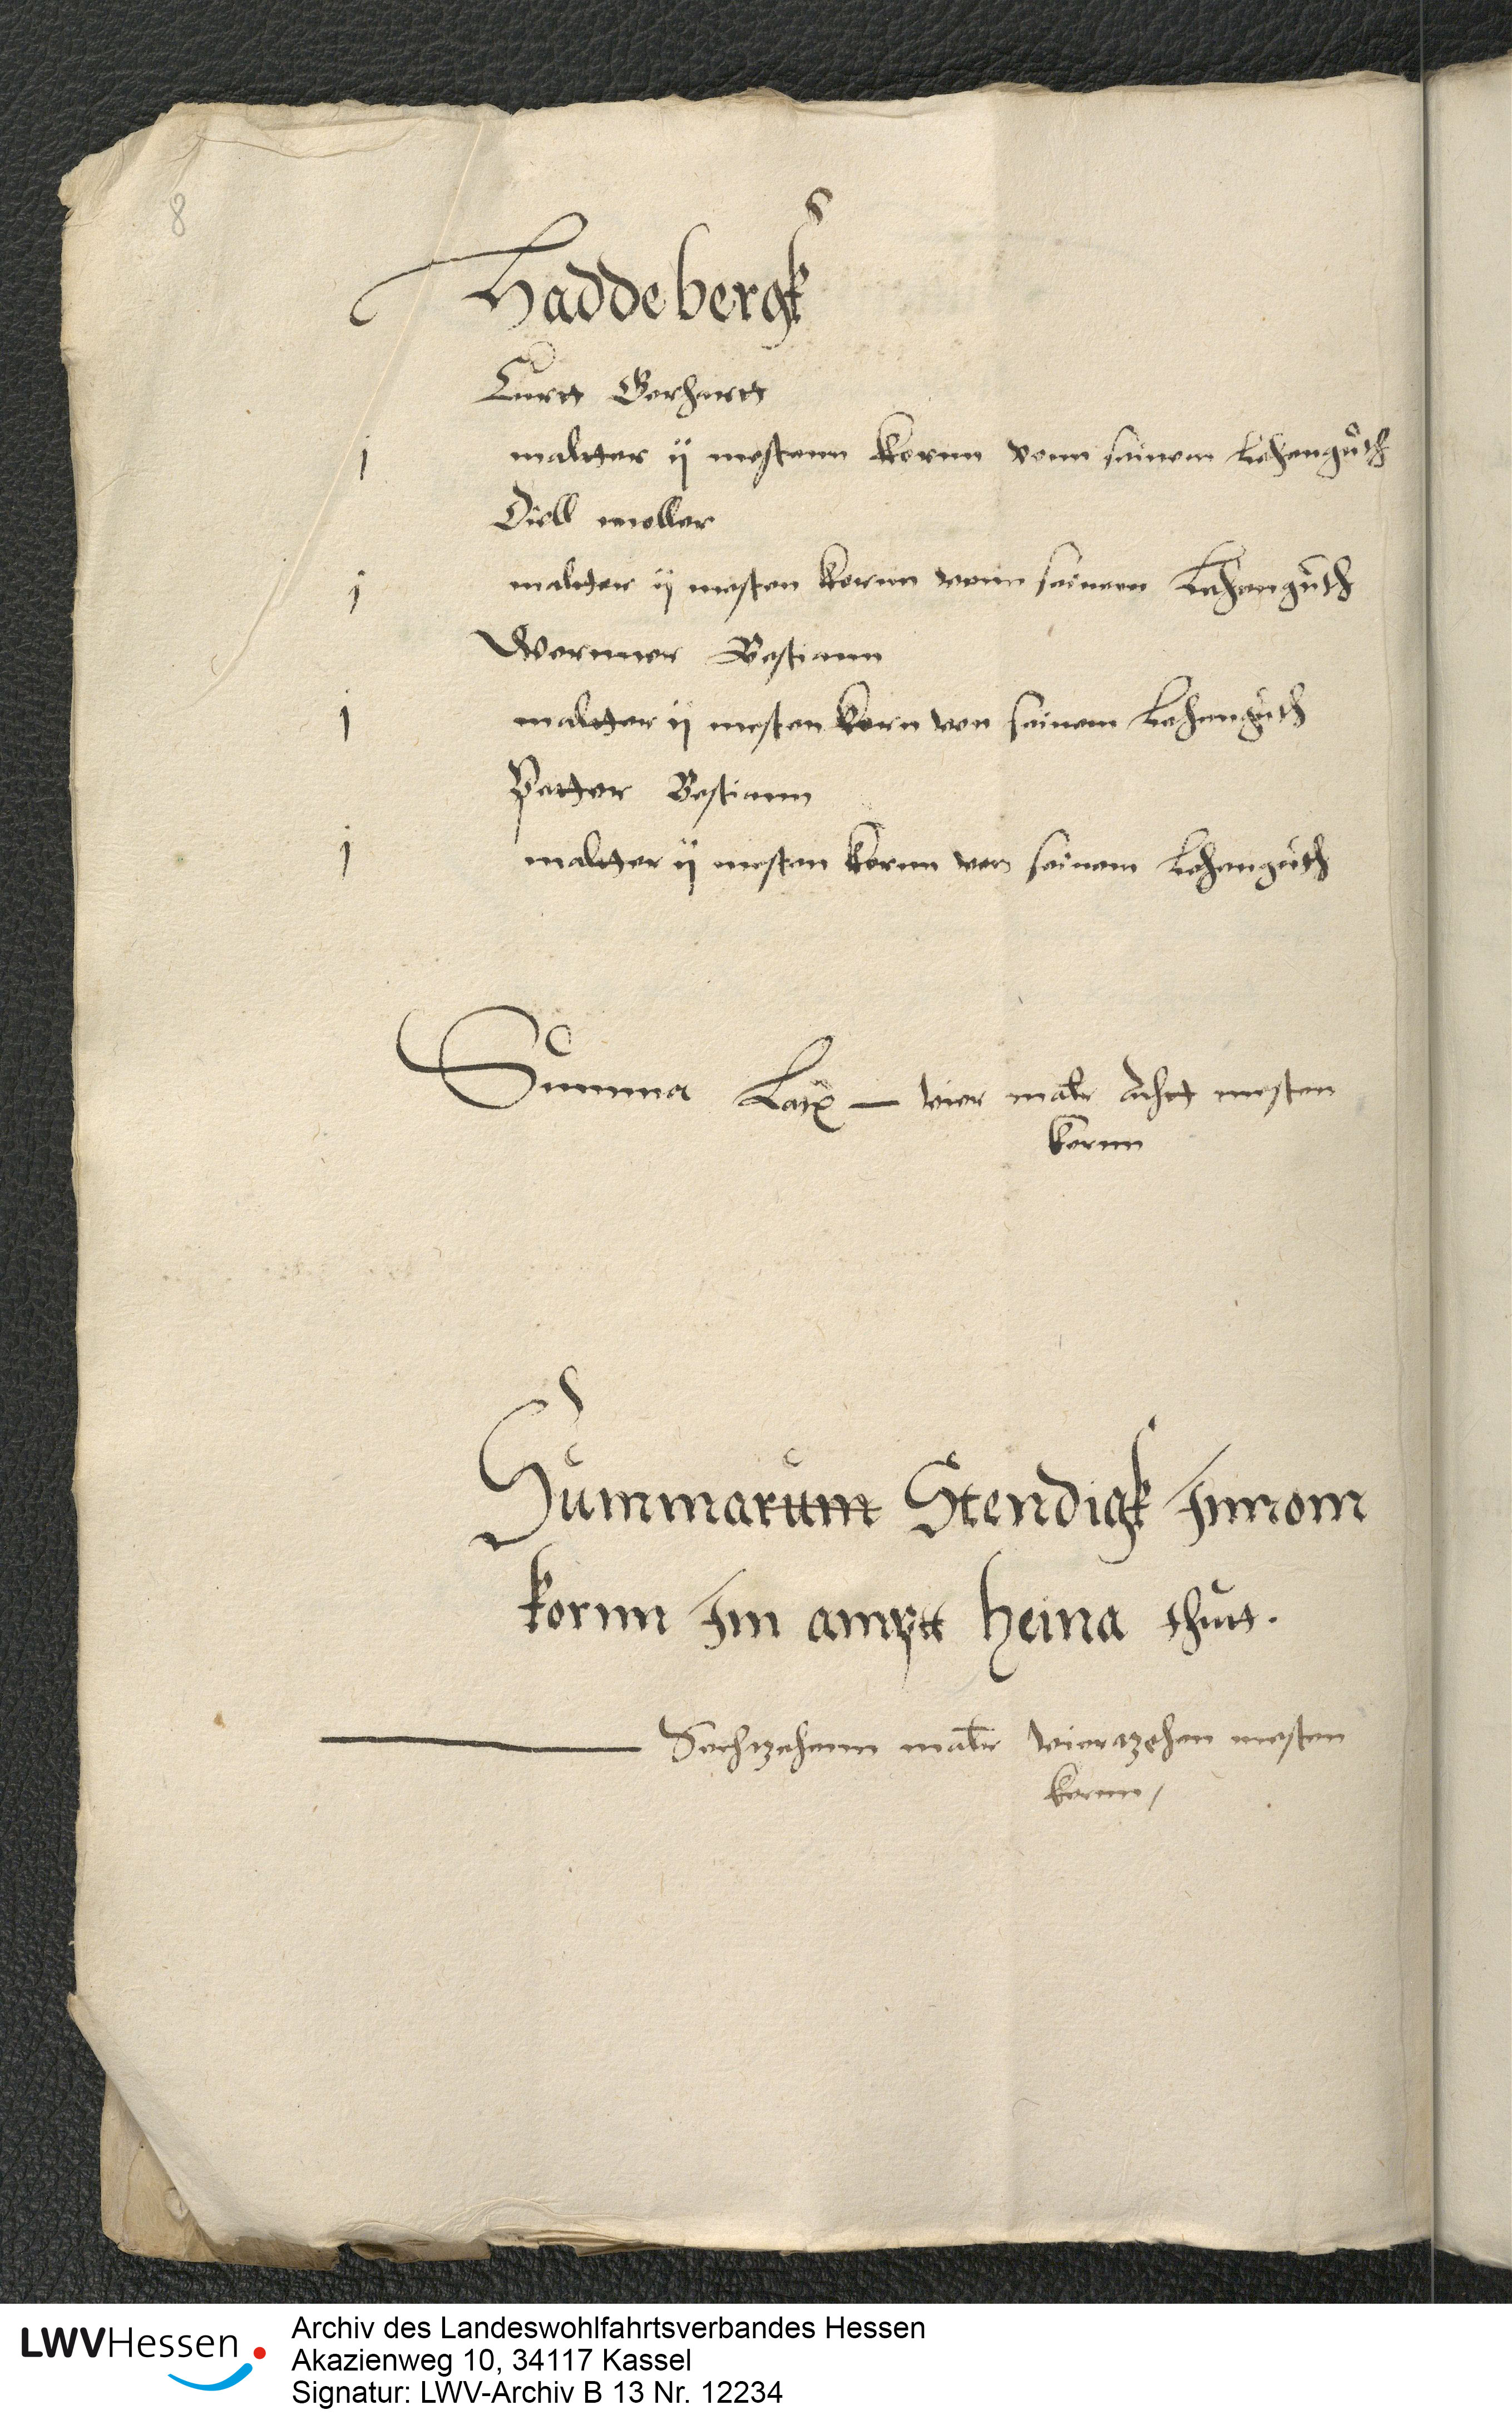 8
Haddebergk
Curtt Gerhartt
j maltter ij mestenn kornn vonn seinem Lehengůth
Diell moller
j maltter ij mesten kornn vonn seinem Lehengůth
Wernner Bestiann
j maltter ij mesten korn von seinem Lehengůth
Petter Bestiann
j maltter ij mesten kornn von seinem Lehengůth
Summa — vier maltr Acht mesten
kornn
Summarum Stendigk Innom
kornn Im amptt Heina thutt.
Sechtzehenn maltr viertzehen mesten
kornn /
LWVHessen
Archiv des Landeswohlfahrtsverbandes Hessen
Akazienweg 10, 34117 Kassel
Signatur: LWV-Archiv B 13 Nr. 12234